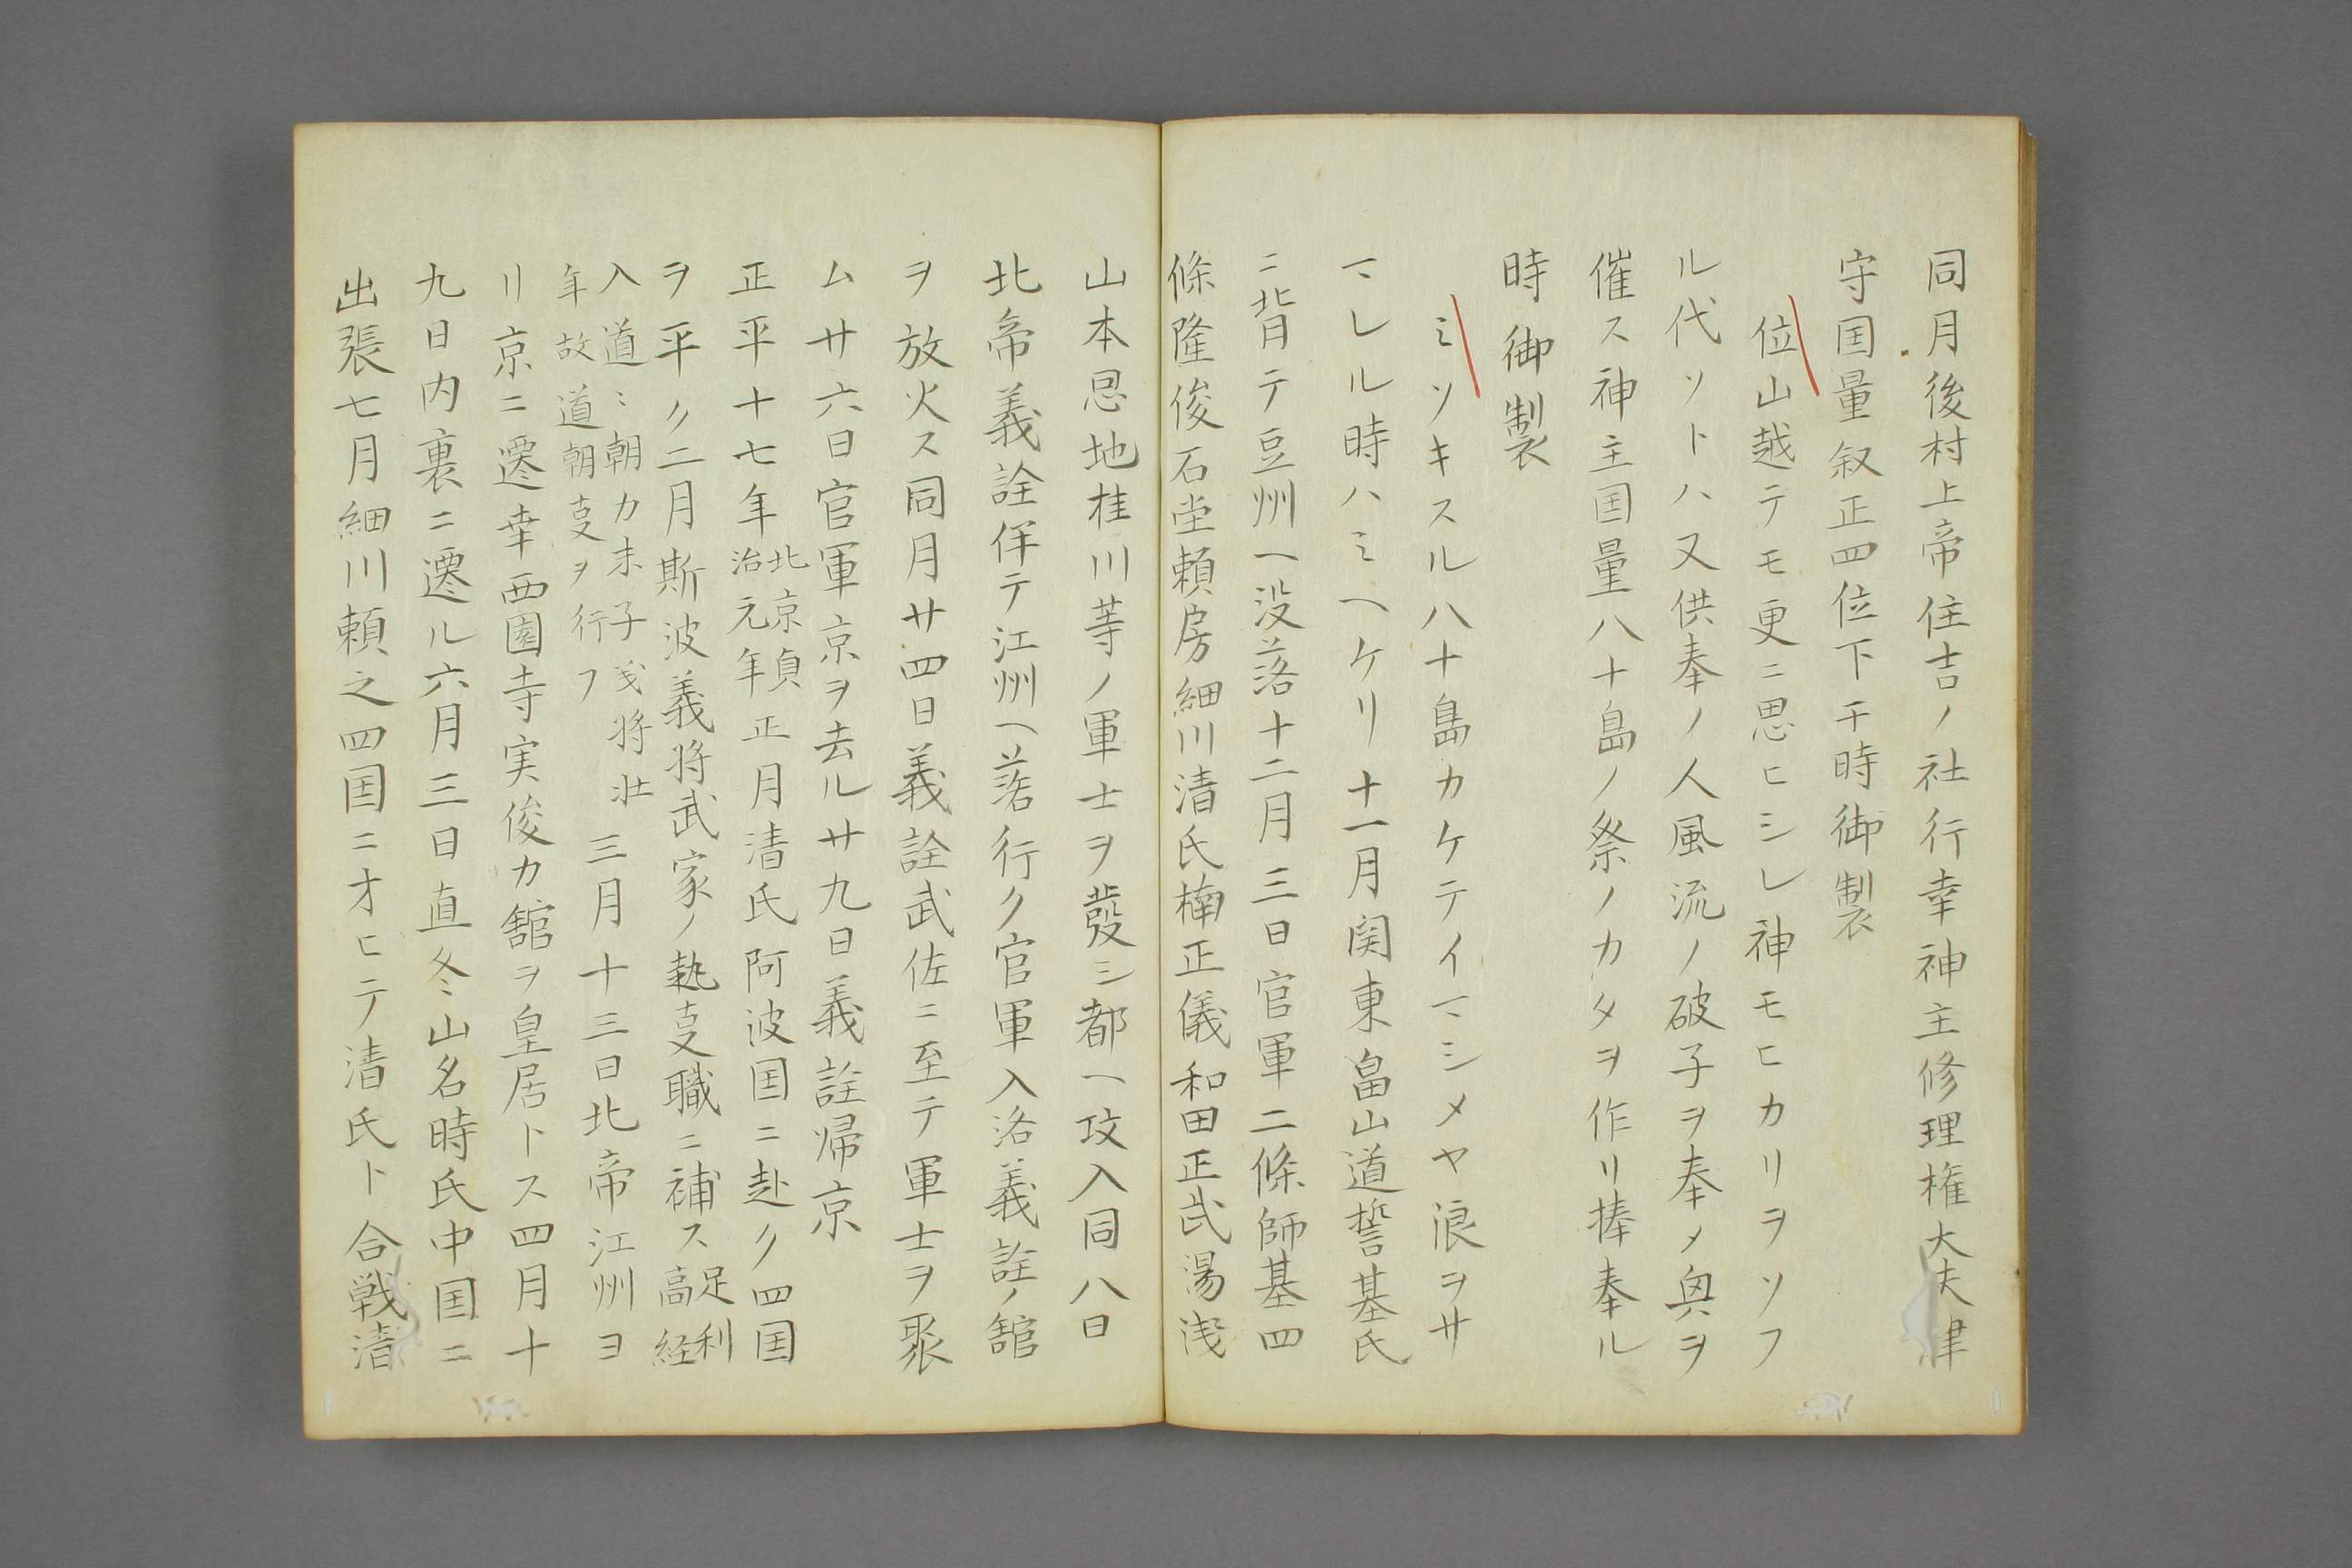 同月後村上帝住吉ノ社行幸神主修理権大夫津
守国量叙正四位下于時御製
位山越テモ更ニ思ヒシレ神モヒカリヲソフ
ル代ソトハ又供奉ノ人風流ノ破子ヲ奉メ興ヲ
催ス神主国量八十島ノ祭ノカタヲ作リ捧奉ル
時御製
ミソキスル八十島カケテイマシメヤ浪ヲサ
マレル時ハミヘケリ十一月関東畠山道誓基氏
ニ背テ豆州ヘ没落十二月三日官軍二條師基四
條隆俊石堂頼房細川清氏楠正儀和田正武湯浅
山本恩地桂川等ノ軍士ヲ発シ都ヘ攻入同八日
北帝義詮伴テ江州ヘ落行ク官軍入洛義詮ノ舘
ヲ放火ス同月廿四日義詮武佐ニ至テ軍士ヲ聚
ム廿六日官軍京ヲ去ル廿九日義詮帰京
正平十七年北京貞治元年正月清氏阿波国ニ赴ク四国
ヲ平ク二月斯波義将武家ノ執事職ニ補ス足利高経
入道々朝カ末子義将壮
年故道朝事ヲ行フ三月十三日北帝江州ヨ
リ京ニ還幸西園寺実俊カ舘ヲ皇居トス四月十
九日内裏ニ遷ル六月三日直冬山名時氏中国ニ
出張七月細川頼之四国ニオヒテ清氏ト合戦清